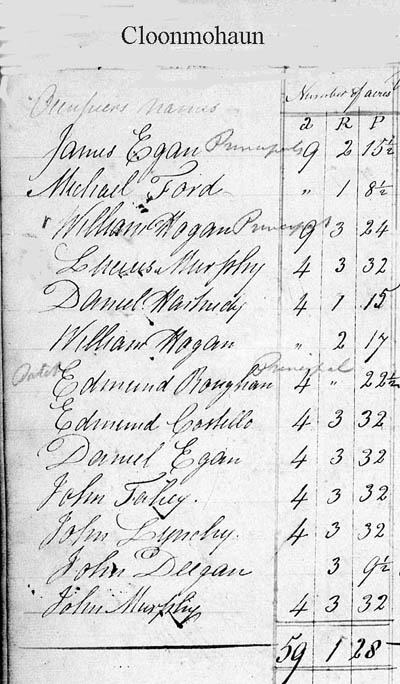 Cloonmohaun
Occupiers names Number of acres
a R P
James Egan Principal 9 2 15½
Michael Ford " 1 8½
William Hogan Principal 9 3 24
Murphy 4 3 32
Daniel 4 1 15
William Hogan " 2 17
Edmund Roughan Principal 4 " 22½
Edmund Costillo 4 3 32
Daniel Egan 4 3 32
John Fahey. 4 3 32
John Lynchy. 4 3 32
John Deegan 3 9½
John Murphy 4 3 32
59 1 28